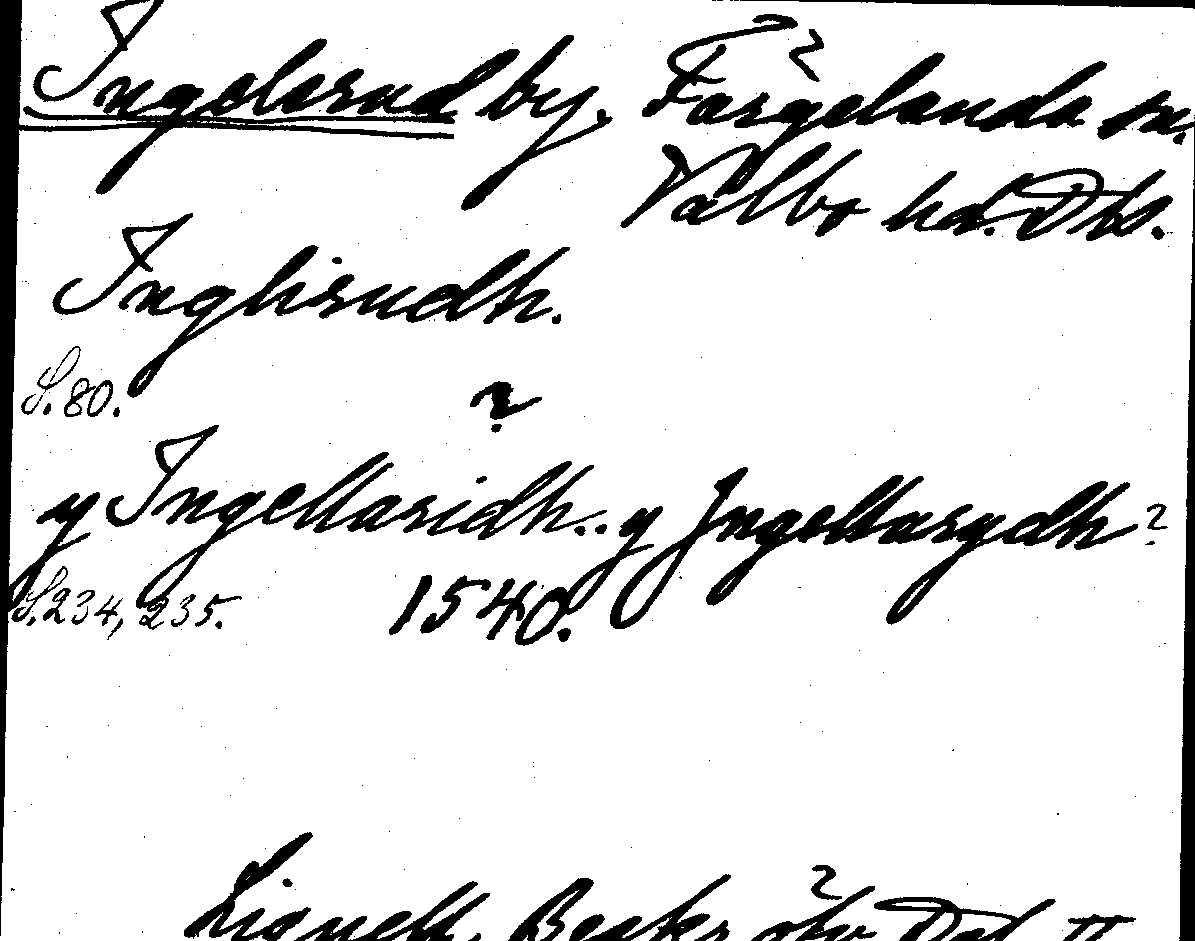 Ingelsrud by. Färgelanda sn.
Valbo hd. Dls.
Inglisrudh.
S. 80.
?
y Ingellasridh.. y Jngellasrydh?
S. 234, 235. 1540.
Lignell, Beskr. öfv. Dal II